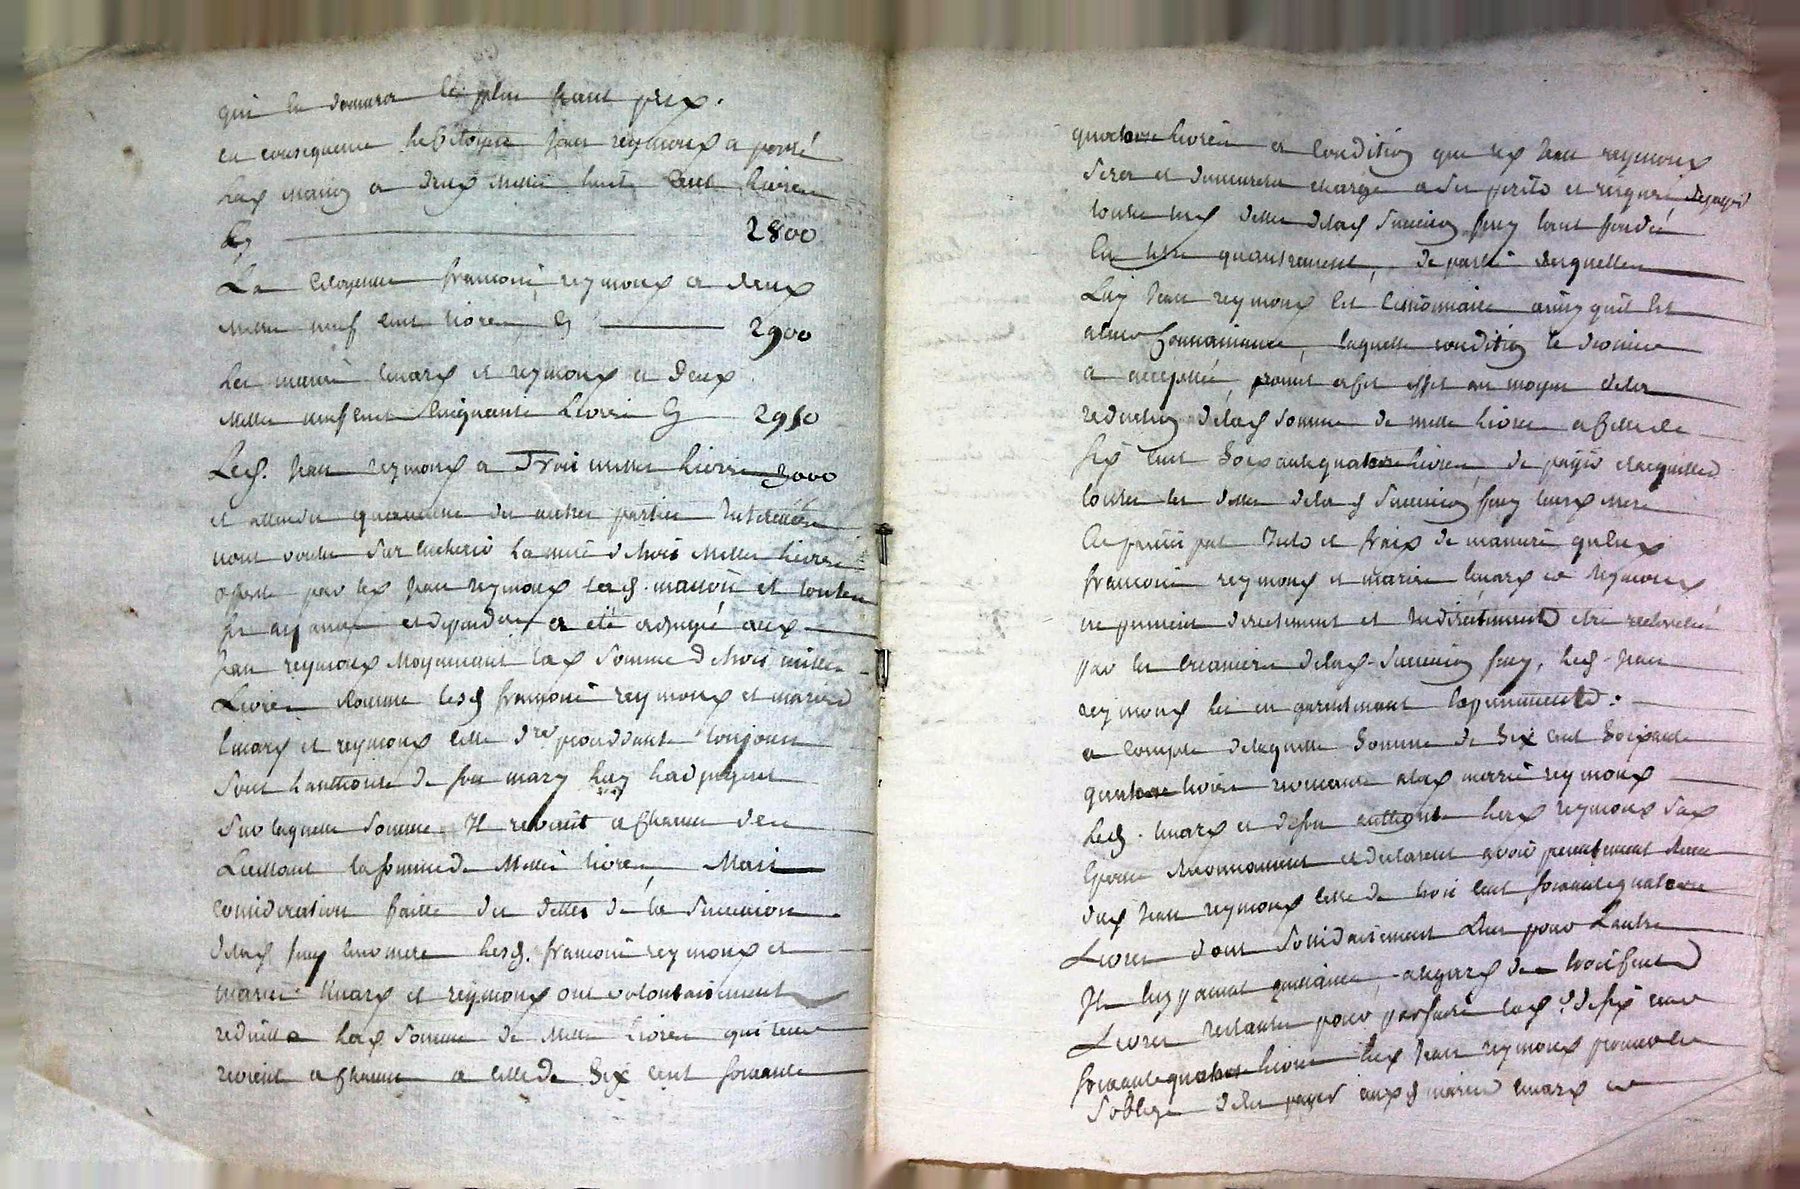 qui en donnera le plus haut prix.
en consequence le Citoyen Jean reymoux a porté
lad maison a deux mille huit Cent livres
Cy 2800
La Citoyenne francoise reymoux a deux
mille neuf cent livres Cy 2900
Les mariés linars et reymoux a deux
mille neuf cent Cinquante livres Cy 2950
Led. Jean reymoux a Trois mille livres 3000
et attendu qu'aucune des autres parties
n'ont voulu sur encherir la mise de trois mille livres
offerte par led Jean reymoux lad. maison et toutes
ses aisances et dependances a été adjugée aud
Jean reymoux moyennant lad somme de trois mille
Livres Comme lesd francoise reymoux et mariés
linars et reymoux cette dre procedante toujours
sous l'authorité de son mary luy l'adjugent
sur laquelle somme Il revient a chacun des
la somme de Mille livres, Mais
consideration faitte des dettes de la succession
delad feu leur mere lesd. francoise reymoux et
mariés linars et reymoux ont volontairement
reduitte lad somme de Mille livres qui leur
revient a chacun a celle de Six cent soixante
quatorze livres a Condition que led Jean reymoux
sera et demeurera chargé a ses perils et risques de payer
toutes les dettes delad succession
Luy Jean reymoux est Cessionnaire ainsy qu'il est
a leur Connaissance, laquelle condition le dernier
a acceptée, promet a cet effet au moyen de la
reduction delad somme de mille livres a celle de
six cent soixante quatorze livres, de payer et acquitter
toutes les dettes delad succession leur mere
de maniere que les
francoise reymoux et mariés linars et reymoux
ne puissent directement et Indirectement être recherchés
par les creanciers delad succession, led Jean
reymoux les en garantissant expressement :
a compte de laquelle somme de Six cent Soixante
quatorze livres revenante a lad marie reymoux
led. linars et de son authorité lad reymoux sad
Epouse reconnaissent et declarent avoir presentement
dud Jean reymoux celle de trois cent soixante quatorze
Livres dont solidairement l'un pour l'autre
Ils luy passent quittance, a l'egard des trois cent
Livres restantes pour parfaire lad. de six cent
soixante quatorze livres led Jean reymoux promet et
s'oblige de les payer auxd mariés linars et